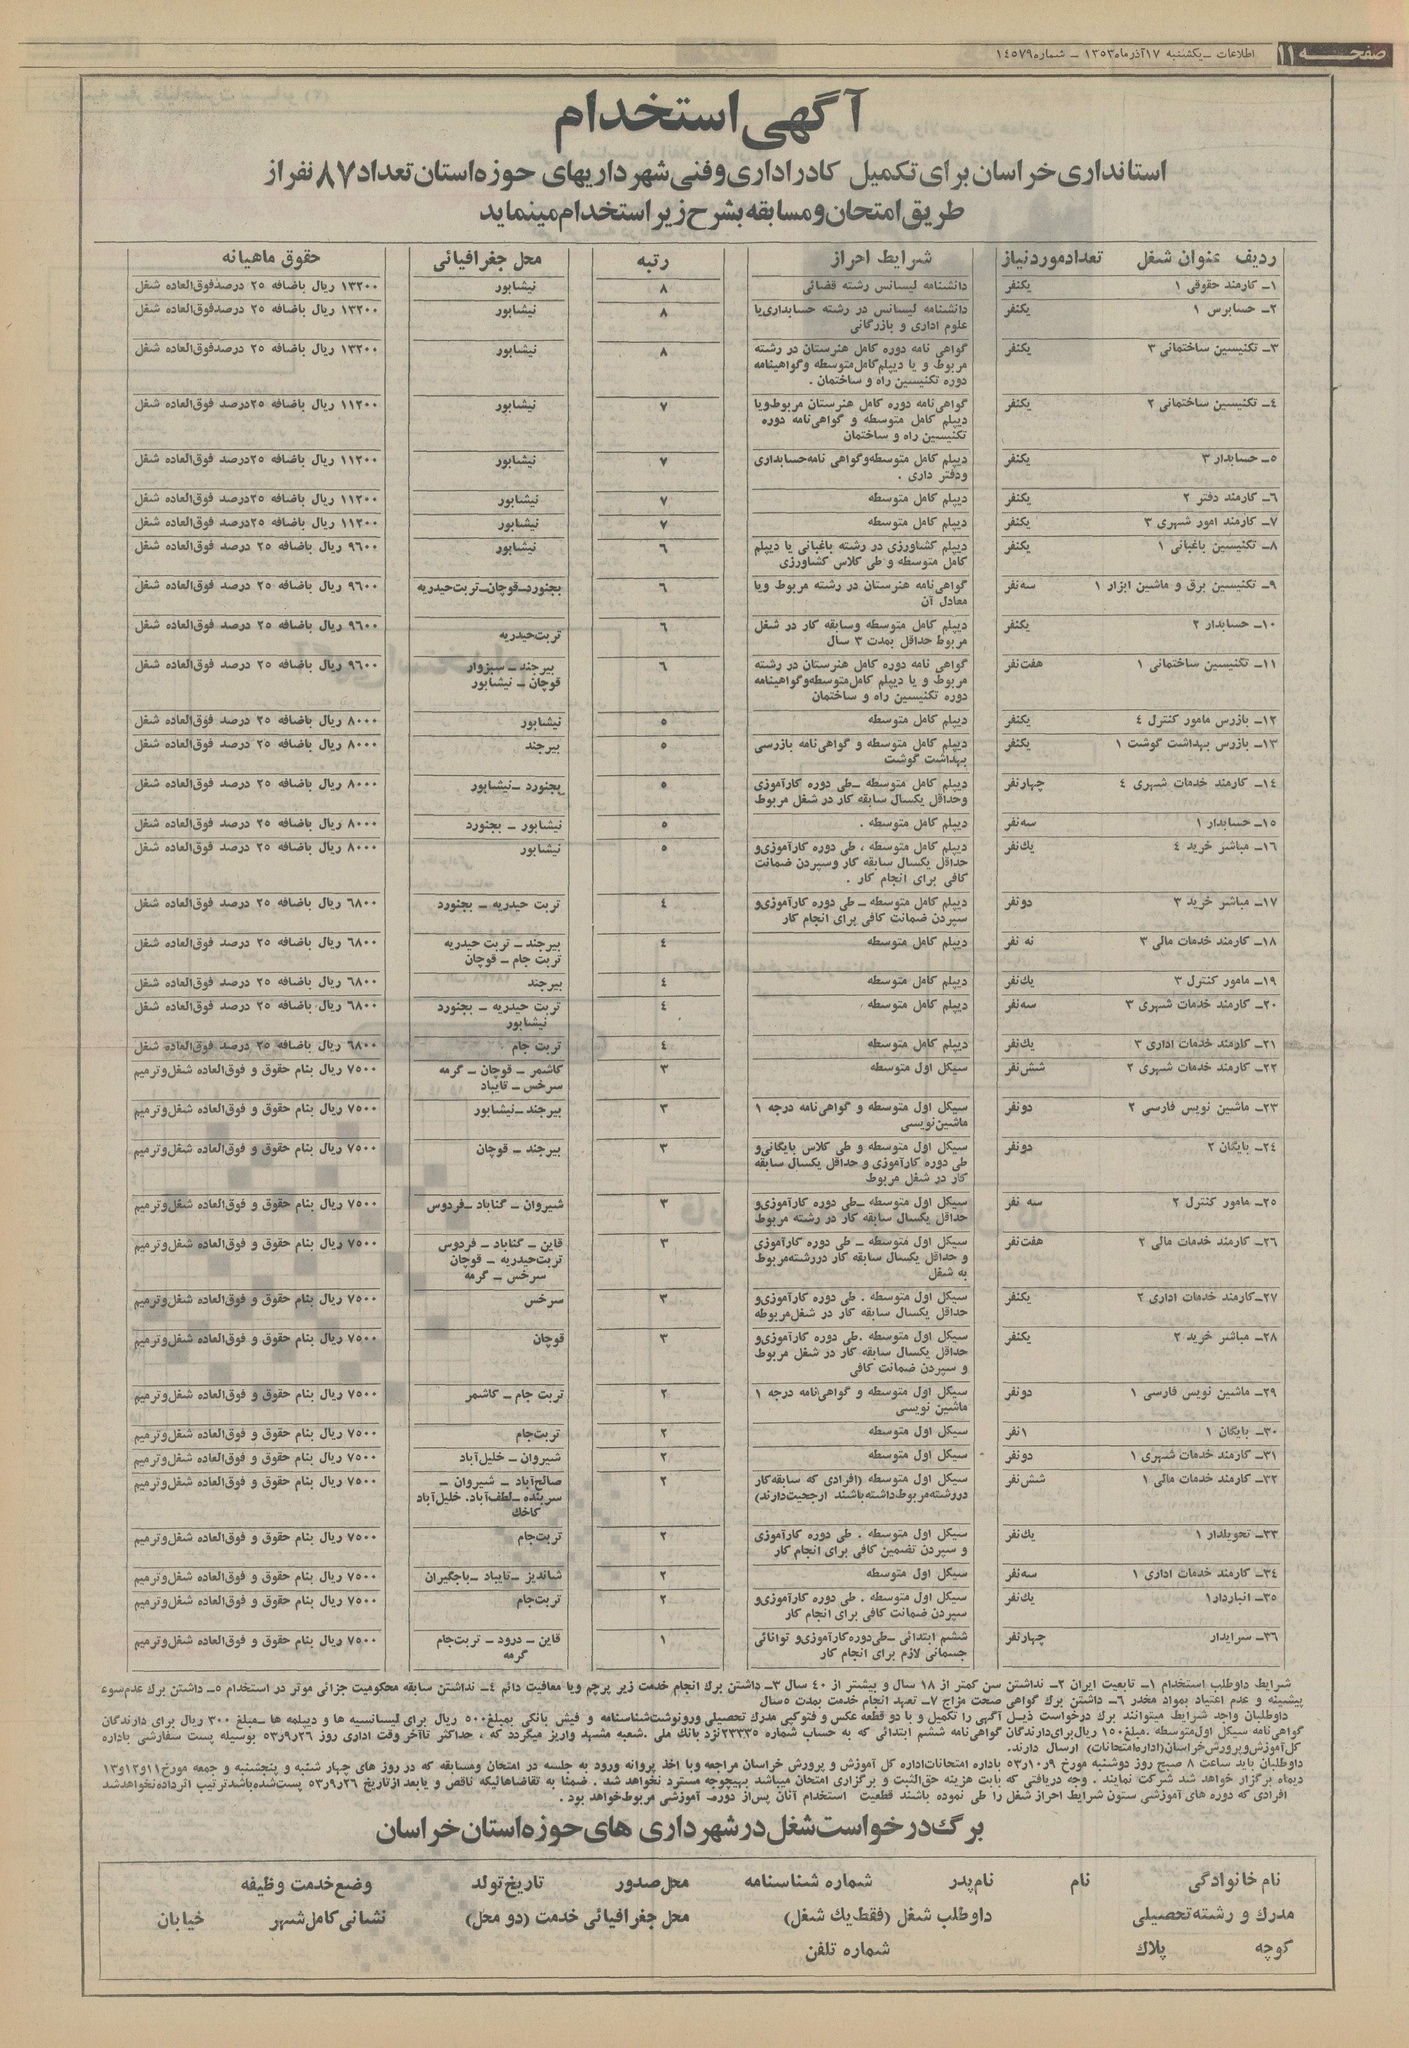 صفحه ۱۱ اطلاعات ـ یکشنبه ۱۷ آذر ماه ۱۳۵۳ ـ شماره ۱۴۵۷۹
آگهی استخدام
استانداری خراسان برای تکمیل کادر اداری و فنی شهرداریهای حوزه استان تعداد ۸۷ نفر از
طریق امتحان و مسابقه بشرح زیر استخدام مینماید
ردیف عنوان شغل تعداد مورد نیاز شرایط احراز رتبه محل جغرافیائی حقوق ماهیانه
۱ـ کارمند حقوقی ۱ یکنفر دانشنامه لیسانس رشته قضائی ۸ نیشابور ۱۳۲۰۰ ریال باضافه ۲۵ درصد فوق‌العاده شغل
۲ـ حسابرس ۱ یکنفر دانشنامه لیسانس در رشته حسابداری یا ۸ نیشابور ۱۳۲۰۰ ریال باضافه ۲۵ درصد فوق‌العاده شغل
علوم اداری و بازرگانی
۳ـ تکنیسین ساختمانی ۳ یکنفر گواهی نامه دوره کامل هنرستان در رشته ۸ نیشابور ۱۳۲۰۰ ریال باضافه ۲۵ درصد فوق‌العاده شغل
مربوط و یا دیپلم کامل متوسطه و گواهینامه
دوره تکنیسین راه و ساختمان .
۴ـ تکنیسین ساختمانی ۲ یکنفر گواهی نامه دوره کامل هنرستان مربوط و یا ۷ نیشابور ۱۱۲۰۰ ریال باضافه ۲۵ درصد فوق‌العاده شغل
دیپلم کامل متوسطه و گواهی نامه دوره
تکنیسین راه و ساختمان
۵ـ حسابدار ۳ یکنفر دیپلم کامل متوسطه و گواهی نامه حسابداری ۷ نیشابور ۱۱۲۰۰ ریال باضافه ۲۵ درصد فوق‌العاده شغل
و دفتر داری .
۶ـ کارمند دفتر ۲ یکنفر دیپلم کامل متوسطه ۷ نیشابور ۱۱۲۰۰ ریال باضافه ۲۵ درصد فوق‌العاده شغل
۷ـ کارمند امور شهری ۳ یکنفر دیپلم کامل متوسطه ۷ نیشابور ۱۱۲۰۰ ریال باضافه ۲۵ درصد فوق‌العاده شغل
۸ـ تکنیسین باغبانی ۱ یکنفر دیپلم کشاورزی در رشته باغبانی یا دیپلم ۶ نیشابور ۹۶۰۰ ریال باضافه ۲۵ درصد فوق‌العاده شغل
کامل متوسطه و طی کلاس کشاورزی
۹ـ تکنیسین برق و ماشین ابزار ۱ سه نفر گواهی نامه هنرستان در رشته مربوط و یا ۶ بجنورد ـ قوچان ـ تربت حیدریه ۹۶۰۰ ریال باضافه ۲۵ درصد فوق‌العاده شغل
معادل آن
۱۰ـ حسابدار ۲ یکنفر دیپلم کامل متوسطه و سابقه کار در شغل ۶ تربت حیدریه ۹۶۰۰ ریال باضافه ۲۵ درصد فوق‌العاده شغل
مربوط حداقل بمدت ۳ سال
۱۱ـ تکنیسین ساختمانی ۱ هفت نفر گواهی نامه دوره کامل هنرستان در رشته ۶ بیرجند ـ سبزوار ۹۶۰۰ ریال باضافه ۲۵ درصد فوق‌العاده شغل
مربوط و یا دیپلم کامل متوسطه و گواهینامه قوچان ـ نیشابور
دوره تکنیسین راه و ساختمان
۱۲ـ بازرس مامور کنترل ۴ یکنفر دیپلم کامل متوسطه ۵ نیشابور ۸۰۰۰ ریال باضافه ۲۵ درصد فوق‌العاده شغل
۱۳ـ بازرس بهداشت گوشت ۱ یکنفر دیپلم کامل متوسطه و گواهی نامه بازرسی ۵ بیرجند ۸۰۰۰ ریال باضافه ۲۵ درصد فوق‌العاده شغل
بهداشت گوشت
۱۴ـ کارمند خدمات شهری ۴ چهار نفر دیپلم کامل متوسطه ـ طی دوره کارآموزی ۵ بجنورد ـ نیشابور ۸۰۰۰ ریال باضافه ۲۵ درصد فوق‌العاده شغل
و حداقل یکسال سابقه کار در شغل مربوط
۱۵ـ حسابدار ۱ سه نفر دیپلم کامل متوسطه . ۵ نیشابور ـ بجنورد ۸۰۰۰ ریال باضافه ۲۵ درصد فوق‌العاده شغل
۱۶ـ مباشر خرید ۴ یك نفر دیپلم کامل متوسطه ، طی دوره کارآموزی و ۵ نیشابور ۸۰۰۰ ریال باضافه ۲۵ درصد فوق‌العاده شغل
حداقل یکسال سابقه کار و سپردن ضمانت
کافی برای انجام کار .
۱۷ـ مباشر خرید ۳ دو نفر دیپلم کامل متوسطه ـ طی دوره کارآموزی و ۴ تربت حیدریه ـ بجنورد ۶۸۰۰ ریال باضافه ۲۵ درصد فوق‌العاده شغل
سپردن ضمانت کافی برای انجام کار
۱۸ـ کارمند خدمات مالی ۳ نه نفر دیپلم کامل متوسطه ۴ بیرجند ـ تربت حیدریه ۶۸۰۰ ریال باضافه ۲۵ درصد فوق‌العاده شغل
تربت جام ـ قوچان
۱۹ـ مامور کنترل ۳ یك نفر دیپلم کامل متوسطه ۴ بیرجند ۶۸۰۰ ریال باضافه ۲۵ درصد فوق‌العاده شغل
۲۰ـ کارمند خدمات شهری ۳ سه نفر دیپلم کامل متوسطه ۴ تربت حیدریه ـ بجنورد ۶۸۰۰ ریال باضافه ۲۵ درصد فوق‌العاده شغل
نیشابور
۲۱ـ کارمند خدمات اداری ۳ یك نفر دیپلم کامل متوسطه ۴ تربت جام ۶۸۰۰ ریال باضافه ۲۵ درصد فوق‌العاده شغل
۲۲ـ کارمند خدمات شهری ۲ شش نفر سیکل اول متوسطه ۳ کاشمر ـ قوچان ـ گرمه ۷۵۰۰ ریال بنام حقوق و فوق‌العاده شغل و ترمیم
سرخس ـ تایباد
۲۳ـ ماشین نویس فارسی ۲ دو نفر سیکل اول متوسطه و گواهی نامه درجه ۱ ۳ بیرجند ـ نیشابور ۷۵۰۰ ریال بنام حقوق و فوق‌العاده شغل و ترمیم
ماشین نویسی
۲۴ـ بایگان ۲ دو نفر سیکل اول متوسطه و طی کلاس بایگانی و ۳ بیرجند ـ قوچان ۷۵۰۰ ریال بنام حقوق و فوق‌العاده شغل و ترمیم
طی دوره کارآموزی و حداقل یکسال سابقه
کار در شغل مربوط
۲۵ـ مامور کنترل ۲ سه نفر سیکل اول متوسطه ـ طی دوره کارآموزی و ۳ شیروان ـ گناباد ـ فردوس ۷۵۰۰ ریال بنام حقوق و فوق‌العاده شغل و ترمیم
حداقل یکسال سابقه کار در رشته مربوط
۲۶ـ کارمند خدمات مالی ۲ هفت نفر سیکل اول متوسطه ـ طی دوره کارآموزی ۳ قاین ـ گناباد ـ فردوس ۷۵۰۰ ریال بنام حقوق و فوق‌العاده شغل و ترمیم
و حداقل یکسال سابقه کار در رشته مربوط تربت حیدریه ـ قوچان
به شغل سرخس ـ گرمه
۲۷ـ کارمند خدمات اداری ۲ یکنفر سیکل اول متوسطه . طی دوره کارآموزی و ۳ سرخس ۷۵۰۰ ریال بنام حقوق و فوق‌العاده شغل و ترمیم
حداقل یکسال سابقه کار در شغل مربوطه
۲۸ـ مباشر خرید ۲ یکنفر سیکل اول متوسطه . طی دوره کارآموزی و ۳ قوچان ۷۵۰۰ ریال بنام حقوق و فوق‌العاده شغل و ترمیم
حداقل یکسال سابقه کار در شغل مربوط
و سپردن ضمانت کافی
۲۹ـ ماشین نویس فارسی ۱ دو نفر سیکل اول متوسطه و گواهی نامه درجه ۱ ۲ تربت جام ـ کاشمر ۷۵۰۰ ریال بنام حقوق و فوق‌العاده شغل و ترمیم
ماشین نویسی
۳۰ـ بایگان ۱ ۱ نفر سیکل اول متوسطه ۲ تربت جام ۷۵۰۰ ریال بنام حقوق و فوق‌العاده شغل و ترمیم
۳۱ـ کارمند خدمات شهری ۱ دو نفر سیکل اول متوسطه ۲ شیروان ـ خلیل آباد ۷۵۰۰ ریال بنام حقوق و فوق‌العاده شغل و ترمیم
۳۲ـ کارمند خدمات مالی ۱ شش نفر سیکل اول متوسطه (افرادی که سابقه کار ۲ صالح آباد ـ شیروان ـ ۷۵۰۰ ریال بنام حقوق و فوق‌العاده شغل و ترمیم
در رشته مربوط داشته باشند ارجحیت دارند) سربنده ـ لطف آباد. خلیل آباد
کاخك
۳۳ـ تحویلدار ۱ یك نفر سیکل اول متوسطه . طی دوره کارآموزی ۲ تربت جام ۷۵۰۰ ریال بنام حقوق و فوق‌العاده شغل و ترمیم
و سپردن تضمین کافی برای انجام کار
۳۴ـ کارمند خدمات اداری ۱ سه نفر سیکل اول متوسطه ۲ شاندیز ـ تایباد ـ باجگیران ۷۵۰۰ ریال بنام حقوق و فوق‌العاده شغل و ترمیم
۳۵ـ انباردار ۱ یك نفر سیکل اول متوسطه . طی دوره کارآموزی و ۲ تربت جام ۷۵۰۰ ریال بنام حقوق و فوق‌العاده شغل و ترمیم
سپردن ضمانت کافی برای انجام کار
۳۶ـ سرایدار چهار نفر ششم ابتدائی ـ طی دوره کارآموزی و توانائی ۱ قاین ـ درود ـ تربت جام ۷۵۰۰ ریال بنام حقوق و فوق‌العاده شغل و ترمیم
جسمانی لازم برای انجام کار گرمه
شرایط داوطلب استخدام ۱ـ تابعیت ایران ۲ـ نداشتن سن کمتر از ۱۸ سال و بیشتر از ۴۰ سال ۳ـ داشتن برك انجام خدمت زیر پرچم و یا معافیت دائم ۴ـ نداشتن سابقه محکومیت جزائی موثر در استخدام ۵ـ داشتن برك عدم سوء
پیشینه و عدم اعتیاد بمواد مخدر ۶ـ داشتن برك گواهی صحت مزاج ۷ـ تعهد انجام خدمت بمدت ۵ سال
داوطلبان واجد شرایط میتوانند برك درخواست ذیل آگهی را تکمیل و با دو قطعه عکس و فتوکپی مدرك تحصیلی و رونوشت شناسنامه و فیش بانکی بمبلغ ۵۰۰ ریال برای لیسانسیه ها و دیپلمه ها ـ مبلغ ۳۰۰ ریال برای دارندگان
گواهی نامه سیکل اول متوسطه . مبلغ ۱۵۰ ریال برای دارندگان گواهی نامه ششم ابتدائی که به حساب شماره ۲۳۳۳۵ نزد بانك ملی . شعبه مشهد واریز میگردد که ، حداکثر تا آخر وقت اداری روز ۵۳/۹/۲۶ بوسیله پست سفارشی باداره
کل آموزش و پرورش خراسان (اداره امتحانات) ارسال دارند.
داوطلبان باید ساعت ۸ صبح روز دوشنبه مورخ ۵۳/۱۰/۹ باداره امتحانات اداره کل آموزش و پرورش خراسان مراجعه و با اخذ پروانه ورود به جلسه در امتحان و مسابقه که در روز های چهار شنبه و پنجشنبه و جمعه مورخ ۱۱ و ۱۲ و ۱۳
دیماه برگزار خواهد شد شرکت نمایند . وجه دریافتی که بابت هزینه حق الثبت و برگزاری امتحان میباشد بهیچوجه مسترد نخواهد شد . ضمنا به تقاضاهائیکه ناقص و یا بعد از تاریخ ۵۳/۹/۲۶ پست شده باشد ترتیب اثر داده نخواهد شد
افرادی که دوره های آموزشی ستون شرایط احراز شغل را طی ننموده باشند قطعیت استخدام آنان پس از دوره آموزشی مربوط خواهد بود .
برگ درخواست شغل در شهرداری های حوزه استان خراسان
نام خانوادگی نام نام پدر شماره شناسنامه محل صدور تاریخ تولد وضع خدمت وظیفه
مدرك و رشته تحصیلی داوطلب شغل (فقط یك شغل) محل جغرافیائی خدمت (دو محل) نشانی کامل شهر خیابان
کوچه پلاك شماره تلفن